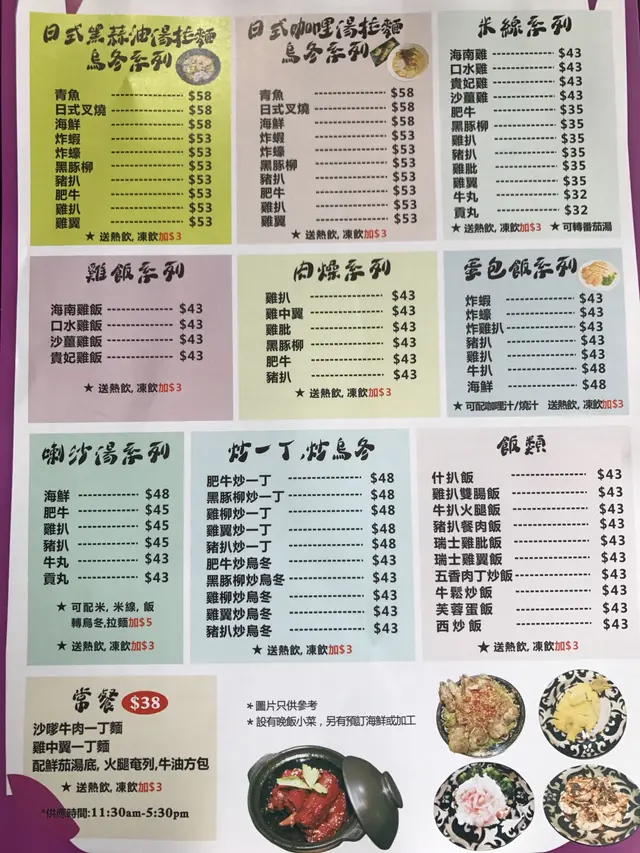 日式黑蒜油湯拉麵
烏冬系列
青魚 $58
日式叉燒 $58
海鮮 $58
炸蝦 $53
炸蠔 $53
黑豚柳 $53
豬扒 $53
肥牛 $53
雞扒 $53
雞翼 $53
★ 送熱飲, 凍飲加$3
日式咖哩湯拉麵
烏冬系列
青魚 $58
日式叉燒 $58
海鮮 $58
炸蝦 $53
炸蠔 $53
黑豚柳 $53
豬扒 $53
肥牛 $53
雞扒 $53
雞翼 $53
★ 送熱飲, 凍飲加$3
米線系列
海南雞 $43
口水雞 $43
貴妃雞 $43
沙薑雞 $43
肥牛 $35
黑豚柳 $35
雞扒 $35
豬扒 $35
雞肶 $35
雞翼 $35
牛丸 $32
貢丸 $32
★ 送熱飲, 凍飲加$3 ★ 可轉番茄湯
雞飯系列
海南雞飯 $43
口水雞飯 $43
沙薑雞飯 $43
貴妃雞飯 $43
★ 送熱飲, 凍飲加$3
肉燥系列
雞扒 $43
雞中翼 $43
雞肶 $43
黑豚柳 $43
肥牛 $43
豬扒 $43
★ 送熱飲, 凍飲加$3
蛋包飯系列
炸蝦 $43
炸蠔 $43
炸雞扒 $43
豬扒 $43
雞扒 $43
牛扒 $48
海鮮 $48
★ 可配咖哩汁/燒汁 送熱飲, 凍飲加$3
喇沙湯系列
海鮮 $48
肥牛 $45
雞扒 $45
豬扒 $45
牛丸 $43
貢丸 $43
★ 可配米, 米線, 飯
轉烏冬,拉麵加$5
★ 送熱飲, 凍飲加$3
炒一丁,炒烏冬
肥牛炒一丁 $48
黑豚柳炒一丁 $48
雞柳炒一丁 $48
雞翼炒一丁 $48
豬扒炒一丁 $48
肥牛炒烏冬 $43
黑豚柳炒烏冬 $43
雞柳炒烏冬 $43
雞翼炒烏冬 $43
豬扒炒烏冬 $43
★ 送熱飲, 凍飲加$3
飯類
什扒飯 $43
雞扒雙腸飯 $43
牛扒火腿飯 $43
豬扒餐肉飯 $43
瑞士雞肶飯 $43
瑞士雞翼飯 $43
五香肉丁炒飯 $43
牛鬆炒飯 $43
芙蓉蛋飯 $43
西炒飯 $43
★ 送熱飲, 凍飲加$3
常餐 $38
沙嗲牛肉一丁麵
雞中翼一丁麵
配鮮茄湯底, 火腿奄列,牛油方包
★ 送熱飲, 凍飲加$3
*供應時間:11:30am-5:30pm
*圖片只供參考
*設有晚飯小菜，另有預訂海鮮或加工